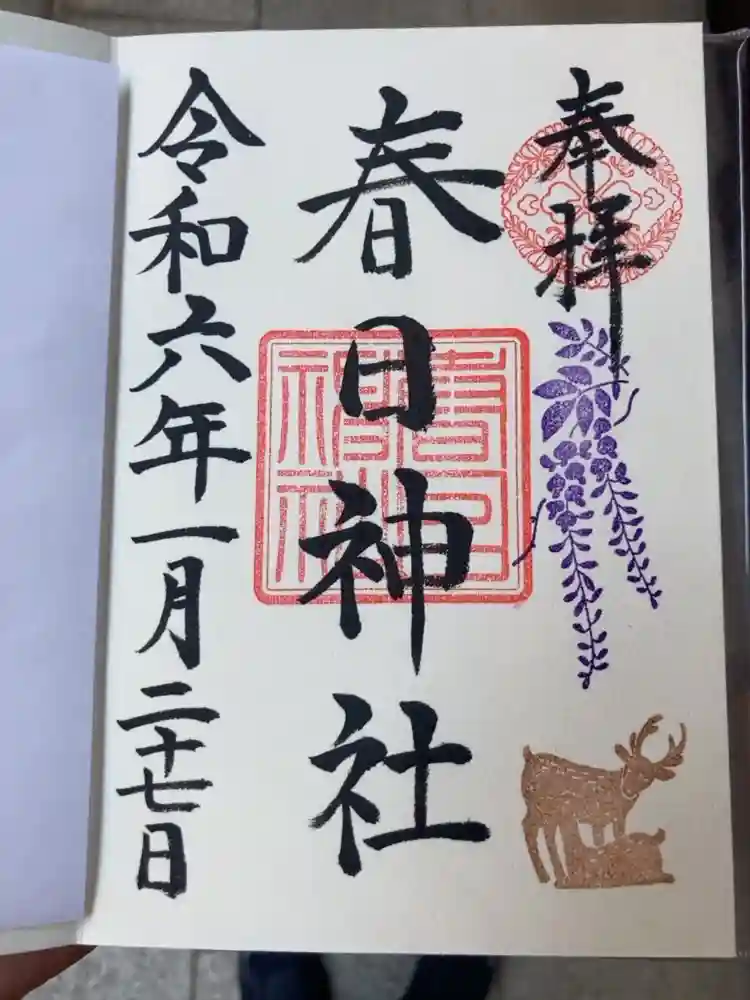 奉拝
春日神社
春日神社
令和六年一月二十七日